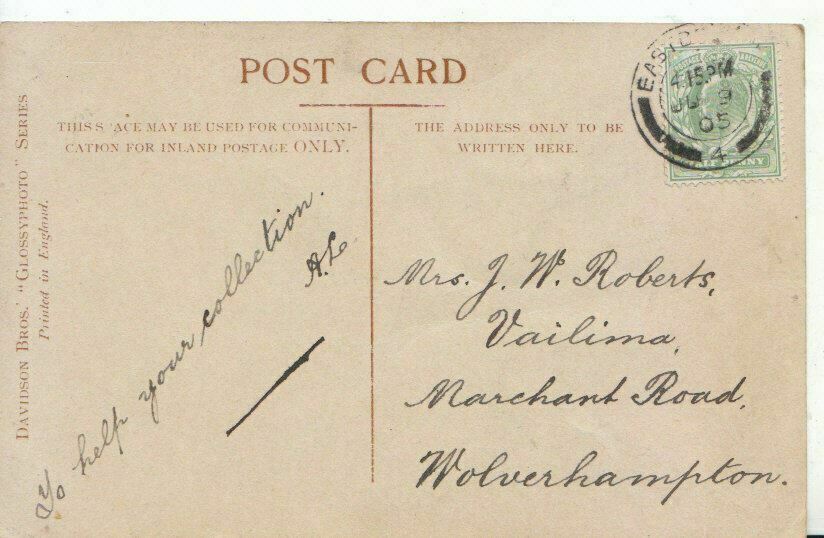 POST CARD
THIS S ACE MAY BE USED FOR COMMUNI-
CATION FOR INLAND POSTAGE ONLY.
THE ADDRESS ONLY TO BE
WRITTEN HERE.
DAVIDSON BROS.' "GLOSSYPHOTO" SERIES
Printed in England.
To help your collection.
A.L.
Mrs. J. W. Roberts,
Vailima,
Marchant Road,
Wolverhampton.
4.15PM
9
05
4